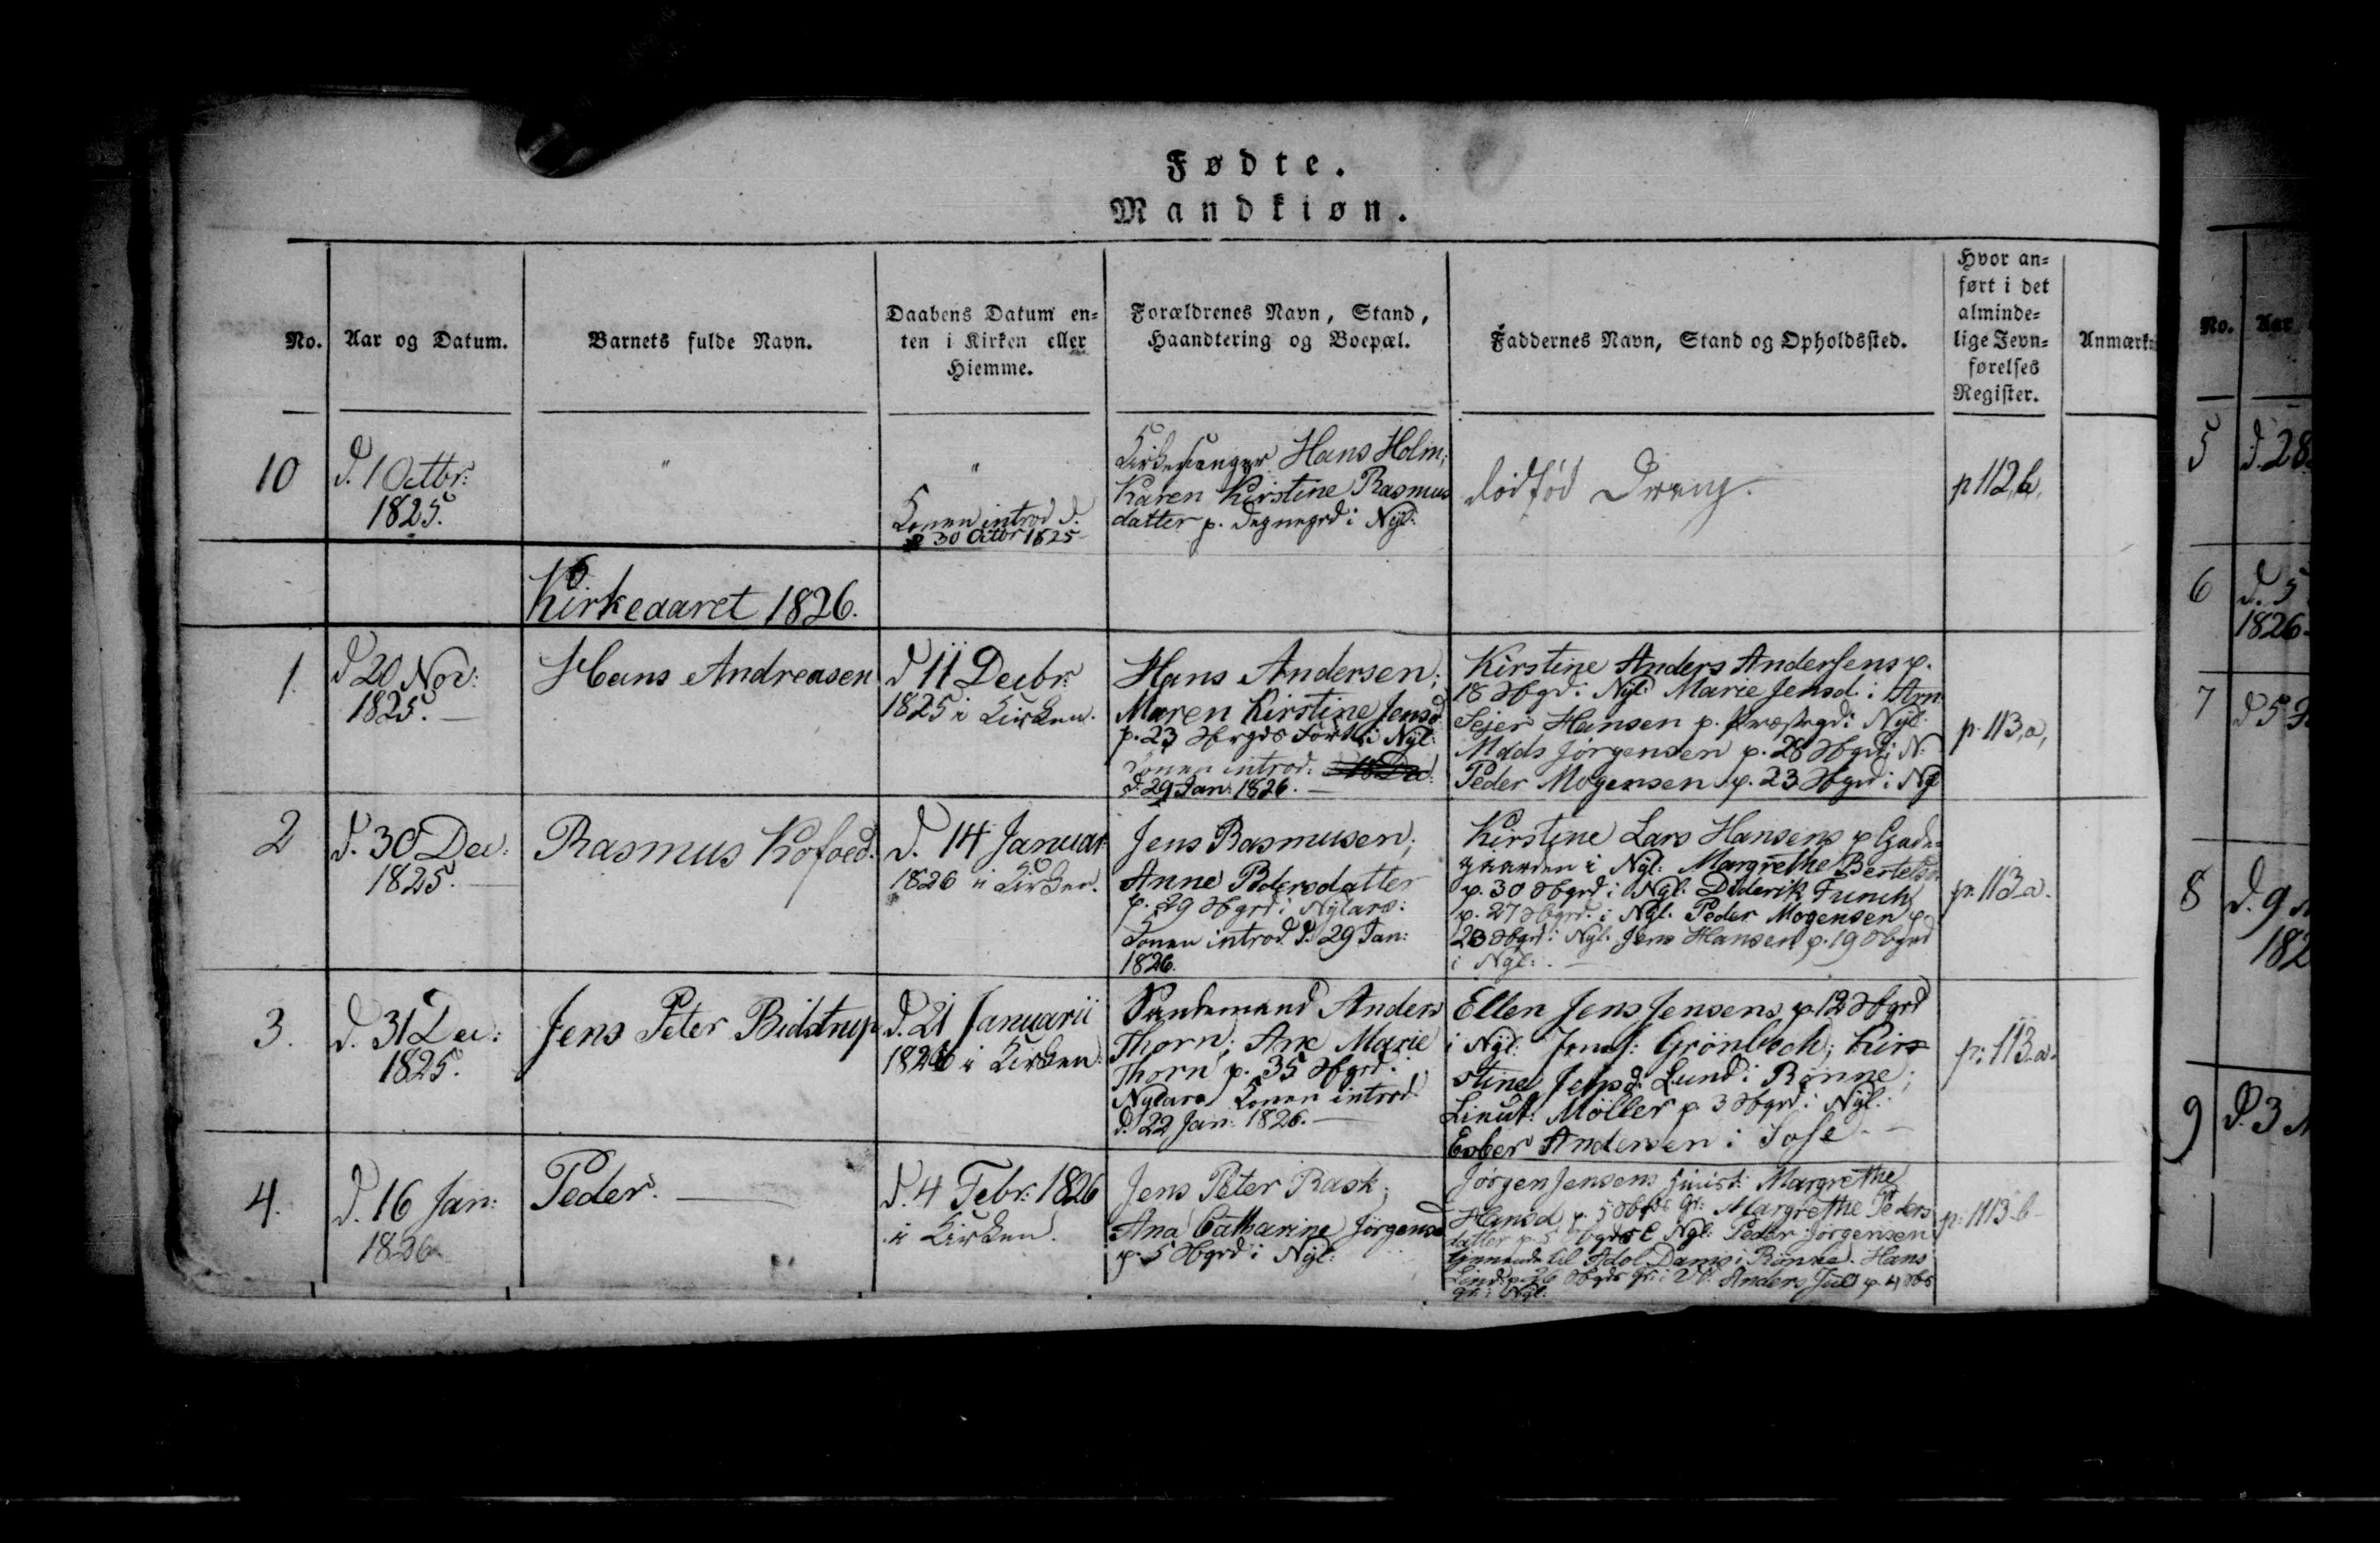 Fødte.
Mandkiøn.
No.
Aar og Datum.
Barnets fulde Navn.
Daabens Datum en-
ten i Kirken eller
Hiemme.
Forældrenes Navn, Stand,
Haandtering og Boepæl.
Faddernes Navn, Stand og Opholdssted.
Hvor an-
ført i det
alminde-
lige Jevn-
førelses
Register.
Anmærk
10
d. 1 Octbr:
1825.
"
"
Konen introd d.
30 Octbr 1825
Kirkesanger Hans Holm;
Karen Kirstine Rasmus
datter p. Degnegrd i Nyl:
dødfød Dreng.
p 112, b,
Kirkeaaret 1826.
1.
d 20 Nov:
1825.
Hans Andreasen
d 11 Decbr:
1825 i Kirken.
Hans Andersen;
Maren Kirstine Jensd.
p. 23 i Nyl:
Konen introd:
d. 29 Jan: 1826.
Kirstine Anders Andersens p.
18 Sbgrd i Nyl: Marie Jensd. i Arn
Sejer Hansen p. Præstegd i Nyl:
Mads Jørgensen p. 28 Sbgrd i N.
Peder Mogensen p. 23 Sbgrd i Nyl
p. 113, a,
2
d. 30 Dec:
1825.
Rasmus Kofoed.
d. 14 Januar
1826 i Kirken.
Jens Rasmusen;
Anne Pedersdatter
p. 29 Sbgrd i Nylars:
Konen introd. d. 29 Jan:
1826.
Kirstine Lars Hansens p Gade-
gaarden i Nyl: Margrethe Bertelsd.
p. 30 Sbgrd i Nyl. Diderik Funch
p. 27 Sbgrd. i Nyl. Peder Mogensen p
23 Sbgrd i Nyl. Jens Hansen p. 19 Sbgrd
i Nyl:
p. 113 a.
3.
d. 31 Dec:
1825.
Jens Peter Bidstrup
d. 21 Januarii
1826 i Kirken.
Sandemand Anders
Thorn; Ane Marie
Thorn p. 35 Sbgrd i
Nylars Konen introd
d. 22 Jan: 1826.
Ellen Jens Jensens p. 12 Sbgrd
i Nyl: Grönbech; Kir
stine Jensd. Lund i Rönne;
Lieut: Möller p. 3 Sbgrd i Nyl:
Esber Andersen i
p. 113 a.
4.
d. 16 Jan:
1826
Peder.
d. 4 Febr: 1826
i Kirken.
Jens Peter Rask;
Ana Catharine Jörgensd
p. 5 Sbgrd i Nyl:
Jörgen Jensens Margrethe
Hansd. p. 5 Gr: Margrethe Peders
datter p. 5 Nyl: Peder Jörgensen
tjenende til Dams i Rönne. Hans
Lind p. 26 Anders Juul p. 4 Sbs
gr: i Nyl:
p: 113 b
No.
Aar
5
d. 28
6
d. 5
1826.
7
d 5
8
d. 9
182
9
d. 3